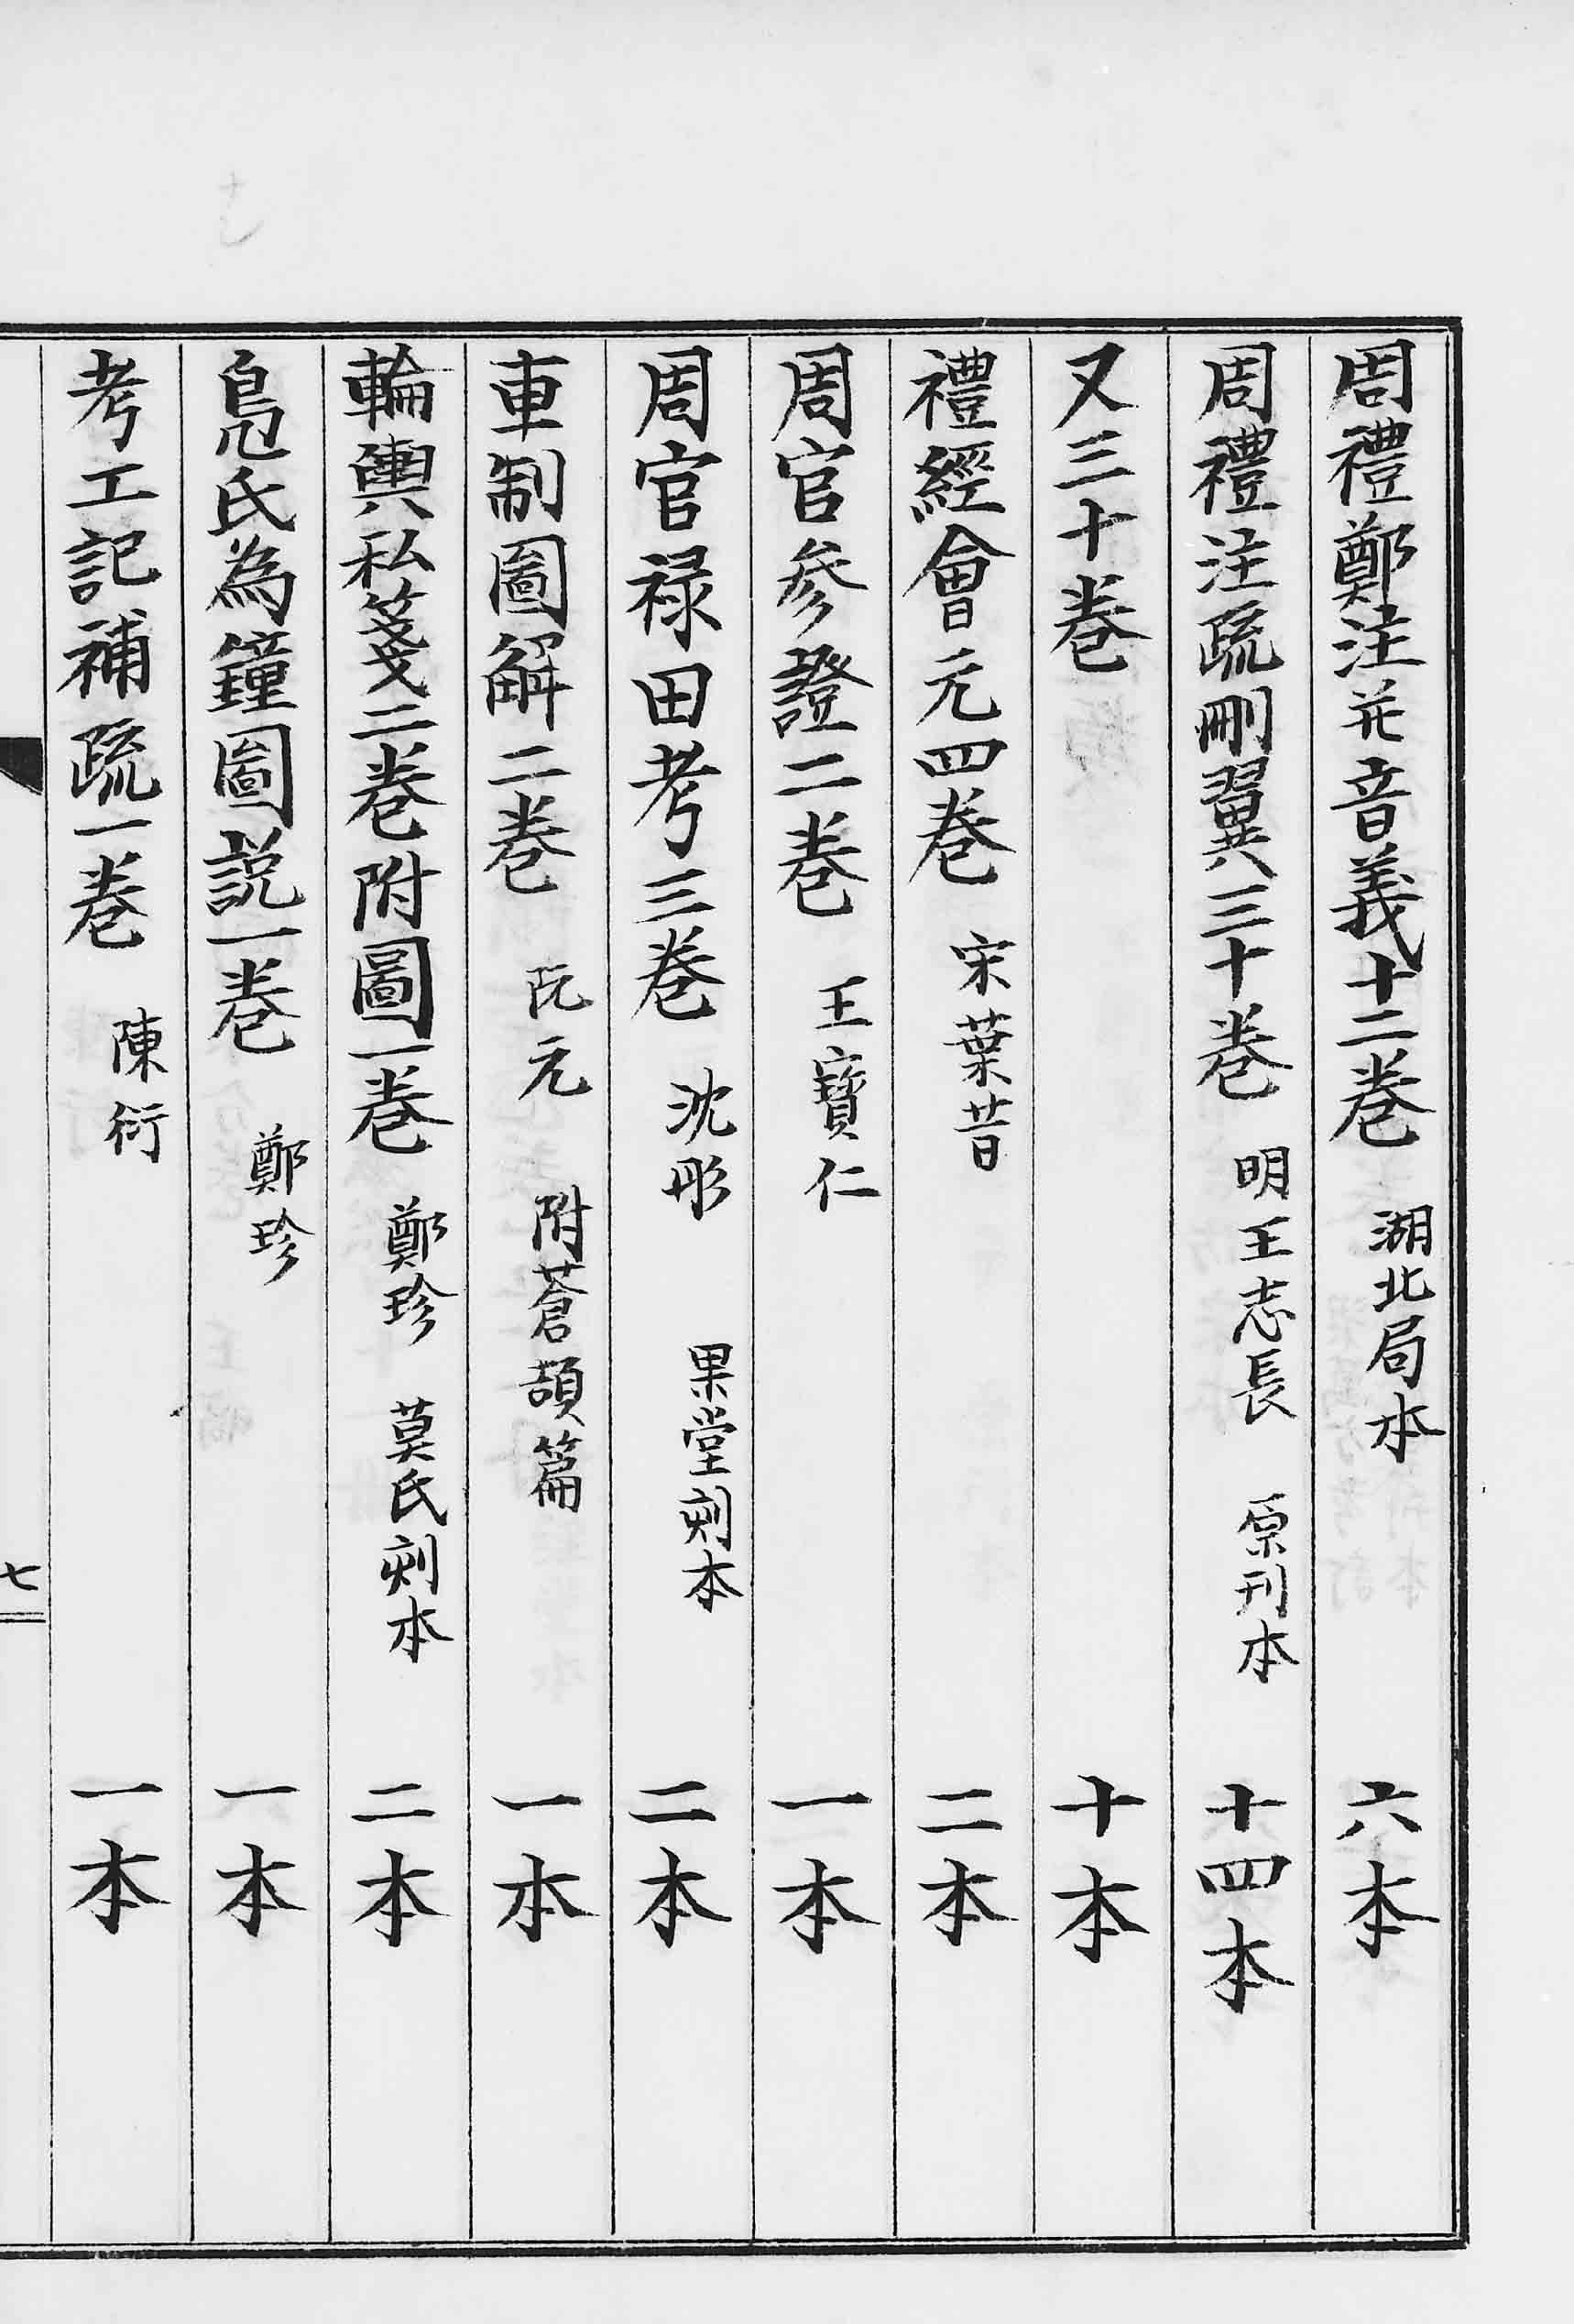 周禮鄭注并音義十二卷 湖北局本 六本
周禮注疏刪翼三十卷 明王志長 原刊本 十四本
又三十卷 十本
禮經會元四卷 宋葉昔 二本
周官參證二卷 王寶仁 一本
周官祿田考三卷 沈彤 果堂刻本 二本
車制圖解二卷 阮元 附蒼頡篇 一本
輪輿私箋二卷附圖一卷 鄭珍 莫氏刻本 二本
鳧氏為鐘圖說一卷 鄭珍 一本
考工記補疏一卷 陳衍 一本
七